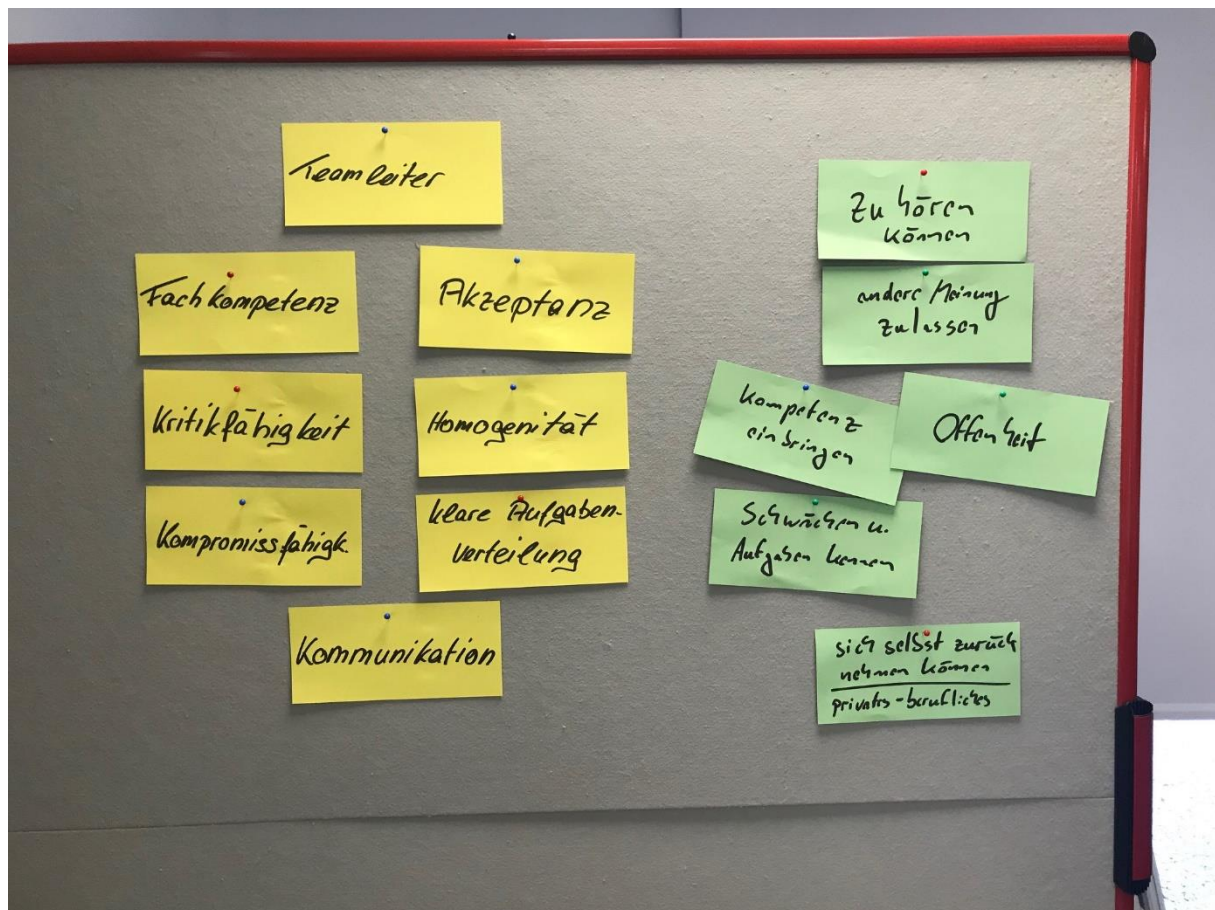 Teamleiter
Fachkompetenz
Akzeptanz
Kritikfähigkeit
Homogenität
Kompromissfähigk.
klare Aufgaben-
verteilung
Kommunikation
Zu hören
können
andere Meinung
zulassen
Kompetenz
einbringen
Offenheit
Schwächen u.
Aufgaben kennen
sich selbst zurück
nehmen können
privates-berufliches